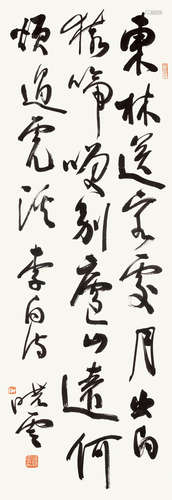 東林送客處月出白
猿啼笑別廬山遠何
煩過虎溪李白诗
晓云